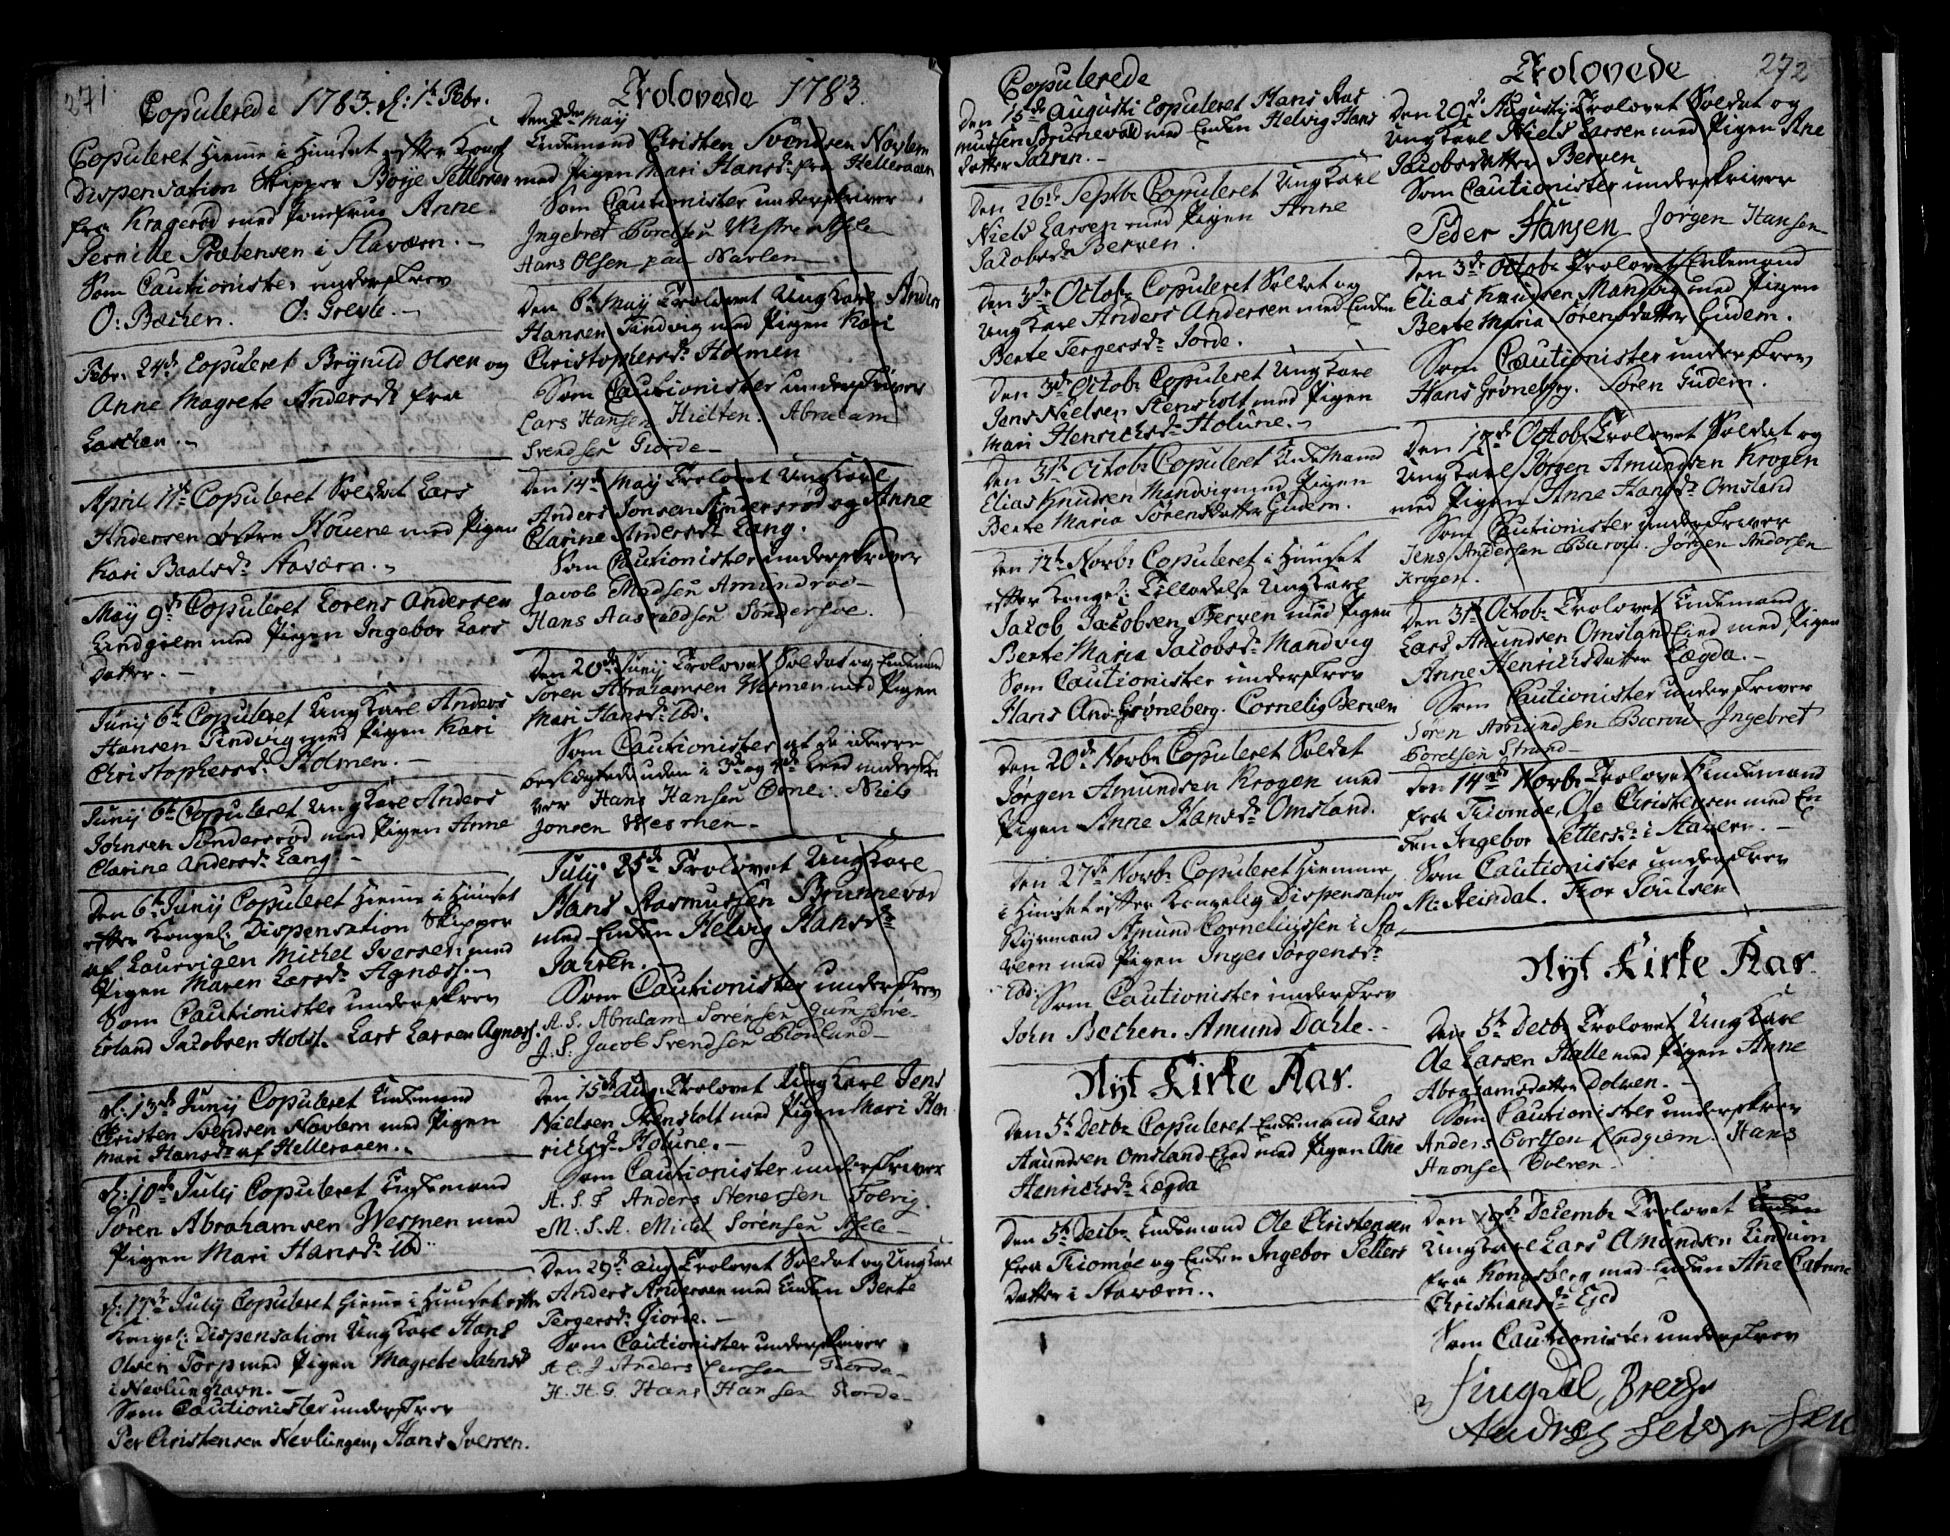 271.
Copulerede 1783. d: 1t Febr.
Copuleret hieme i Huuset efter Kongl
Dispensation Skipper Boye Pettersen
fra Kragerød med Jomfrue Anne
Pernille Præbensen i Staværn. -
Som Cautionister underskrev
O: Bachen. O: Greve. -
Febr. 24de Copuleret Brynild Olsen og
Anne Magrete Andersdr fra
Laschen. -
April 11te Copuleret Soldat Lars
Andersen Houene med Pigen
Kari Baalsdr Staværn. -
May 9de Copuleret Lorens Andersen
Lindgiem med Pigen Ingebor Lars
datter. -
Junij 6te Copuleret Ungkarl Anders
Hansen Tindvig med Pigen Kari
Christophersdr Holmen. -
Junij 6te Copuleret Ungkarl Anders
Johnsen Sønderrød med Pigen Anne
Clarine Andersdr Lang. -
Den 6te Junij Copuleret hieme i Huuset
efter Kongel: Dispensation Skipper
af Laurvigen Michel Iversen med
Pigen Maren Larsdr Agnæss. -
Som Cautionister underskrev
Erland Jacobsen Holst. Lars Larsen Agnæss.
d: 13de Junij Copuleret Enkemand
Christen Svendsen Navlem med Pigen
Mari Hansdr af Helleraaen. -
d: 10de Julij Copuleret Enkemand
Søren Abrahamsen Wesmen med
Pigen Mari Hansdr ibd:
d: 17de Julij Copuleret hieme i Huuset efter
Kongel: Dispensation Ungkarl Hans
Olsen Torp med Pigen Magrete Jahnsdr
i Nevlunghavn. -
Som Cautionister underskrev
Per Christensen Nevlungen, Hans Iversen.
Trolovede 1783.
Den 2den May
Enkemand Christen Svendsen Navlem
med Pigen Mari Hansdr fra Helleraaen
Som Cautionister underskriver
Ingebret Boretsen Westre Asele
Hans Olsen paa Navlem
Den 6te May Trolovet Ungkarl Anders
Hansen Tindvig med Pigen Kari
Christophersdr Holmen
Som Cautionister underskriver
Lars Hansen Hielten. Abraham
Svendsen Giorde -
Den 14de May Trolovet Ungkarl
Anders Jonsen Sønderrød og Anne
Clarine Andersdr Lang.
Som Cautionister underskriver
Jacob Madsen Amundrød -
Hans Aasvaldsen Sønderrøe.
Den 20de Junij Trolovet Soldat og Enkemand
Søren Abrahamsen Wesmen med Pigen
Mari Hansdr ibd:
Som Cautionister at de ikke ere
beslægtede uden i 3de og 4de Leed underskri
ver Hans Hansen Niels
Jonsen Wesmen. -
Julij 25de Trolovet Ungkarl
Hans Rasmussen Brunnevad
med Enken Helvig Hansdr
Jahren. -
Som Cautionister underskrev
A. S. Abraham Sørensen Gumserøe -
J. S: Jacob Svendsen Klonland -
Den 15de Aug. Trolovet Ungkarl Jens
Nielsen Stensholt med Pigen Mari Hen
richsdr Holune. -
Som Cautionister underskriver
A. S. F Anders Stenersen Foldvig
M. S. A. Michel Sørensen Asele -
Den 29de Aug Trolovet Soldat og Ungkarl
Anders Andersen med Enken Berte
Tergersdr Giorde. -
Som Cautionister underskriver
A L J Anders Larsen Jorde -
H. H. G. Hans Hansen Giorde -
Copulerede
Den 15de Augusti Copuleret Hans Ras
mussen Brunevald med Enken Helvig Hans
datter Jahren. -
Den 26de Septbr Copuleret Ungkarl
Niels Larsen med Pigen Anne
Jacobsdr Berven.
Den 3de Octobr Copuleret Soldat og
Ungkarl Anders Andersen med Enken
Berte Tergersdr Jorde.
Den 3de Octobr Copuleret Ungkarl
Jens Nielsen Stensholt med Pigen
Mari Henrichsdr Holune. -
Den 31te Octobr Copuleret Enkemand
Elias Knudsen Mandvig med Pigen
Berte Maria Sørensdatter Gudem.
Den 12te Novbr Copuleret i Huuset
efter Kongel: Tilladelse Ungkarl
Jacob Jacobsen Berven med Pigen
Berte Maria Jacobsdr Mandvig
Som Cautionister underskrev
Hans And: Grøneberg. Cornelig Berven
Den 20de Novbr Copuleret Soldat
Jørgen Amundsen Krogen med
Pigen Anne Hansdr Omsland.
Den 27de Novbr Copuleret hiemme
i Huuset efter Kongelig Dispensation
Styrmand Amund Corneliussen i Sta
vern med Pigen Inger Jørgensdr
ibd:
Som Cautionister underskrev
John Bechen. Amund Dahle. -
Nyt Kirke Aar.
Den 5te Decbr Copuleret Enkemand Lars
Amundsen Omsland Eied med Pigen Ane
Henrichsdr Lægda
Den 5te Decbr Enkemand Ole Christensen
fra Tiomøe og Enken Ingebor Petters
datter i Staværn. -
Trolovede
272
Den 29de Augustij Trolovet Soldat og
Ungkarl Niels Larsen med Pigen Ane
Jacobsdatter Berven
Som Cautionister underskriver
Peder Hansen Jørgen Hansen
Den 3de Octobr Trolovet Enkemand
Elias Knudsen Mandvig med Pigen
Berte Maria Sørensdatter Gudem.
Som Cautionister underskrev
Hans Grøneberg. Søren Gudem.
Den 17de Octobr Trolovet Soldat og
Ungkarl Jørgen Amundsen Krogen
med Pigen Anne Hansdr Omsland
Som Cautionister underskriver
Jens Andersen Barou. Jørgen Andersen
Krogen.
Den 31te Octobr Trolovet Enkemand
Lars Amundsen Omsland Eied med Pigen
Anne Henrichsdatter Lægda. -
Som Cautionister underskriver
Søren Amundsen Barou Ingebret
Boretsen Strand -
Den 14de Novbr Trolovet Enkemand
fra Tiomøe, Ole Christensen med En
ken Ingebor Pettersdr i Stavern. -
Som Cautionister underskrev
M: Reindal. Thor Poulsen
Nyt Kirke Aar.
Den 5te Decbr Trolovet Ungkarl
Ole Larsen Halle med Pigen Anne
Abrahamsdatter Dolven. -
Som Cautionister underskrev
Anders Bortsen Lindgiem. Hans
Aronsen Dolven -
Den 19de Decembr Trolovet Enken
Ungkarl Lars Amundsen Lindum
fra Kongsberg med Enken Ane Catrine
Christiansdr Eied
Som Cautionister underskrev